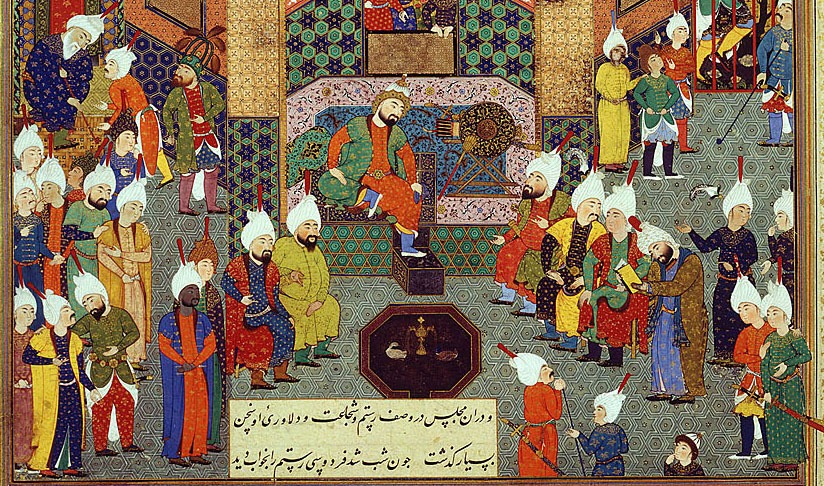 و دران مجلس در وصف رستم و شجاعت و دلاوری او سخن
بسیار گذشت چون شب شد فردوسی رستم را بخواب دید